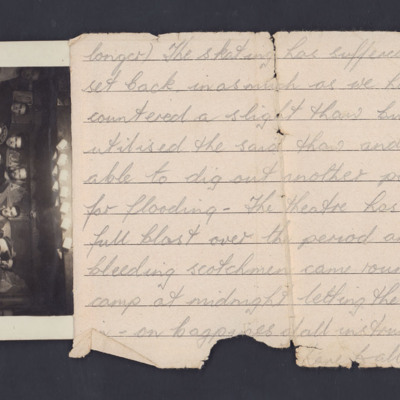 longer) The skating has suffered
set back inasmuch as we h
countered a slight thaw bu
utilised the said thaw and
able to dig out another p
for flooding - The theatre has
full blast over the period a
bleeding scotchmen came roun
camp at midnight letting the
in - on bagpipes & all instru